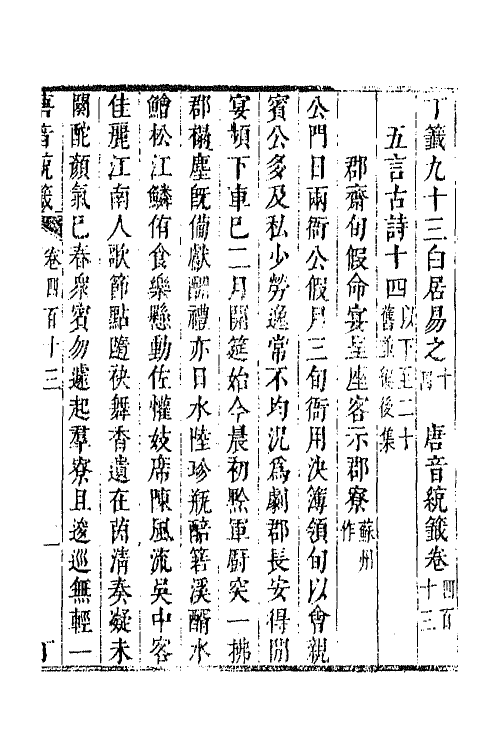 丁籤九十三白居易之十四　唐音統籤卷四百十三
五言古詩十四以下至二十舊並編後集
郡齋旬假命宴呈座客示郡寮蘇州作
公門日兩衙公假月三旬衙用決簿領旬以會親
賓公多及私少勞逸常不均況爲劇郡長安得閒
宴頻下車已二月開筵始今晨初黔軍廚突一拂
郡榻塵既備獻酬禮亦日水陸珍瓶醅箬溪醑水
鱠松江鱗侑食樂懸動佐懽妓席陳風流吳中客
佳麗江南人歌節點隨袂舞香遺在茵清奏凝未
闋酡顏氣已春衆賓勿遽起羣寮且逡巡無輕一
唐音統籤　卷四百十三　一　丁